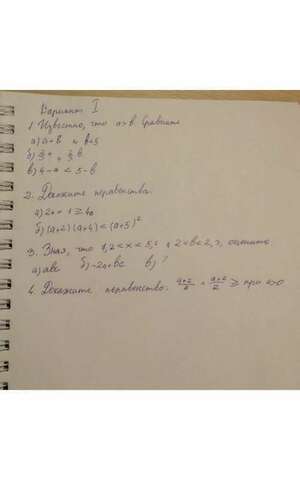 Вариант I
1. Известно, что a>b. Сравните
а) a+8 и b+5
б) и b
в) 4-a < 5-b
2. Докажите неравенства.
б) (a+2)(a+4)<(a+3)²
3. Зная, что 1,2<x<5, 2<b<2, оцените
а) abc б) -2a+bc в) ?
4. Докажите неравенство: при a>0